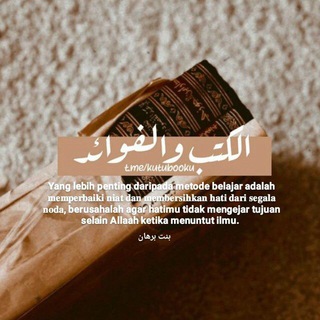 الكتب والفوائد
t.me/kutubooku
Yang lebih penting daripada metode belajar adalah
memperbaiki niat dan membersihkan hati dari segala
noda, berusahalah agar hatimu tidak mengejar tujuan
selain Allaah ketika menuntut ilmu.
بنت برهان